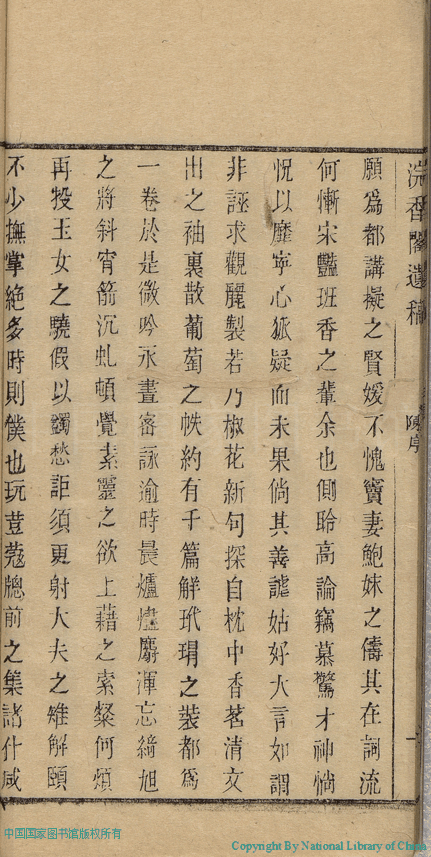 浣香閣遺稿
陳序
一
願為都講擬之賢媛不愧竇妻鮑妹之儔其在詞流
何慚宋豔班香之輩余也側聆高論竊慕驚才神惝
怳以靡寧心狐疑而未果倘其善謔姑好大言如謂
非誣求觀麗製若乃椒花新句探自枕中香茗清文
出之袖裏散葡萄之帙約有千篇解玳瑁之裝都為
一卷於是微吟永晝密詠逾時晨爐燼麝渾忘綺旭
之將斜宵箭沉虬頓覺素靈之欲上藉之索粲何煩
再投玉女之驍假以蠲愁詎須更射大夫之雉解頤
不少撫掌絕多時則僕也玩荳蔻牕前之集諸什咸
中国国家图书馆版权所有
Copyright By National Library of China